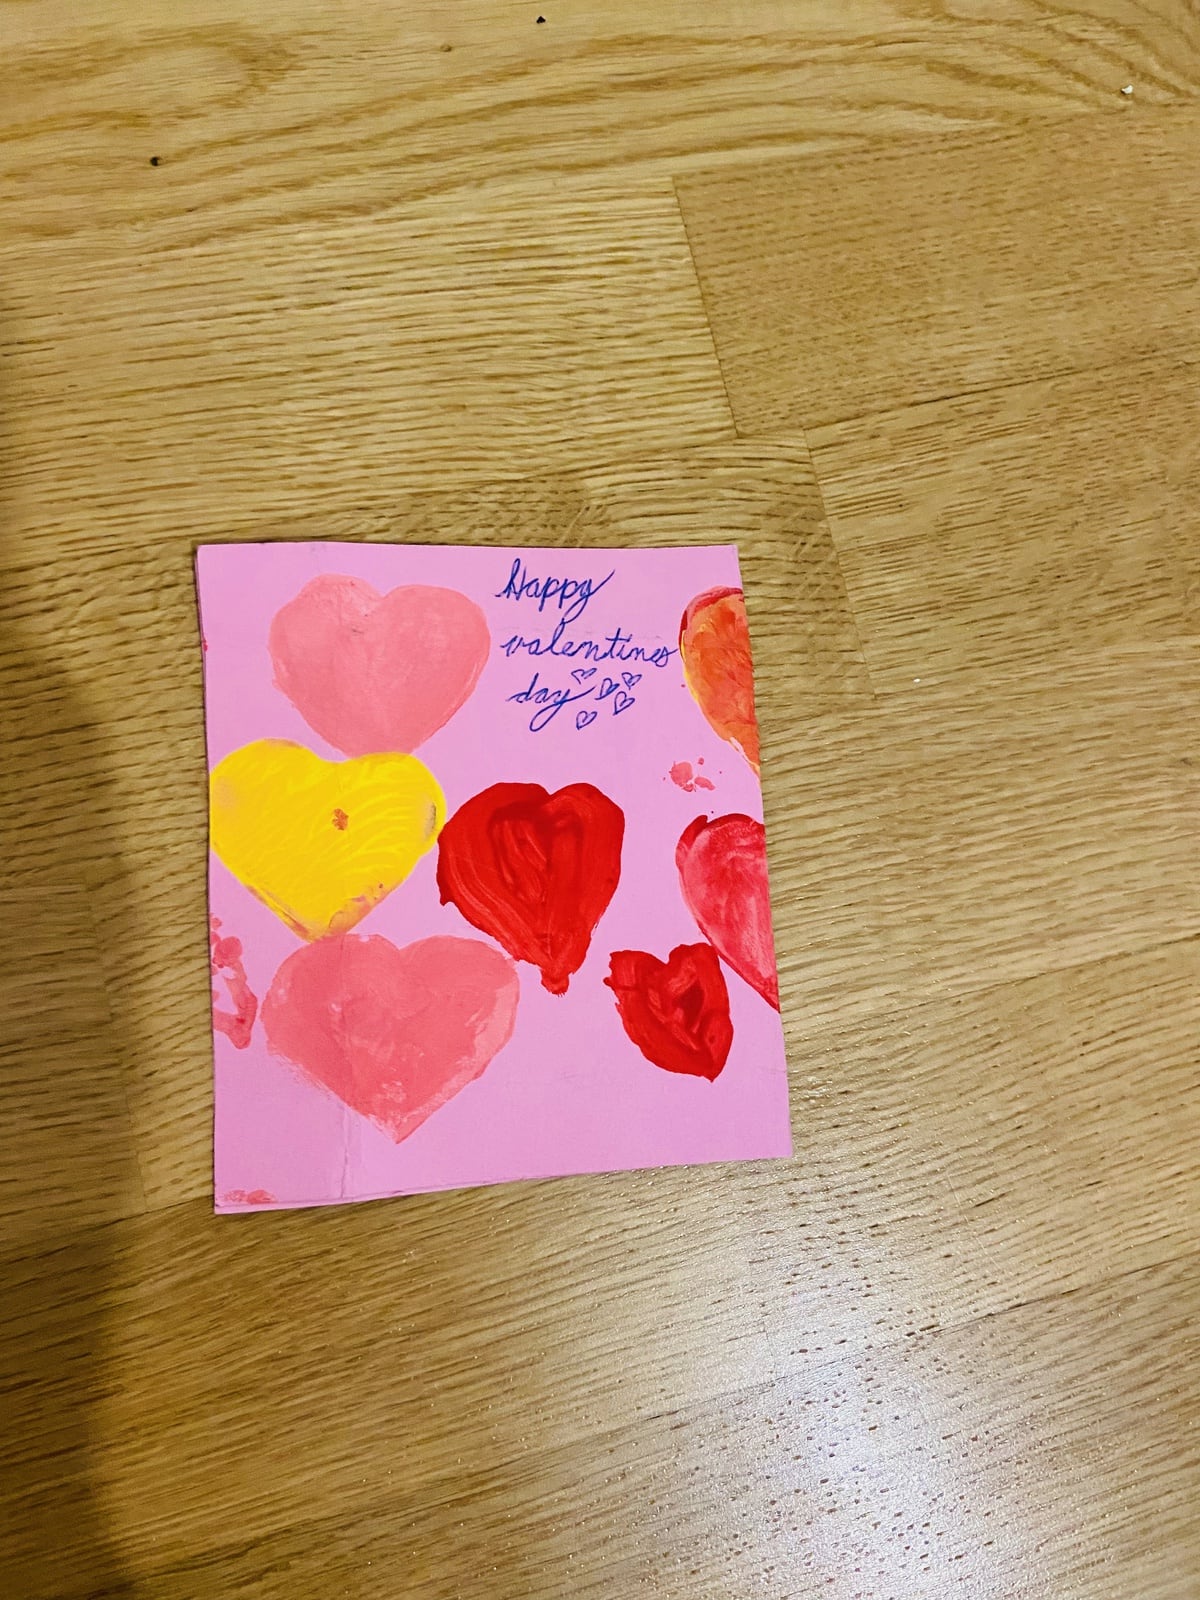 Happy
valentines
day